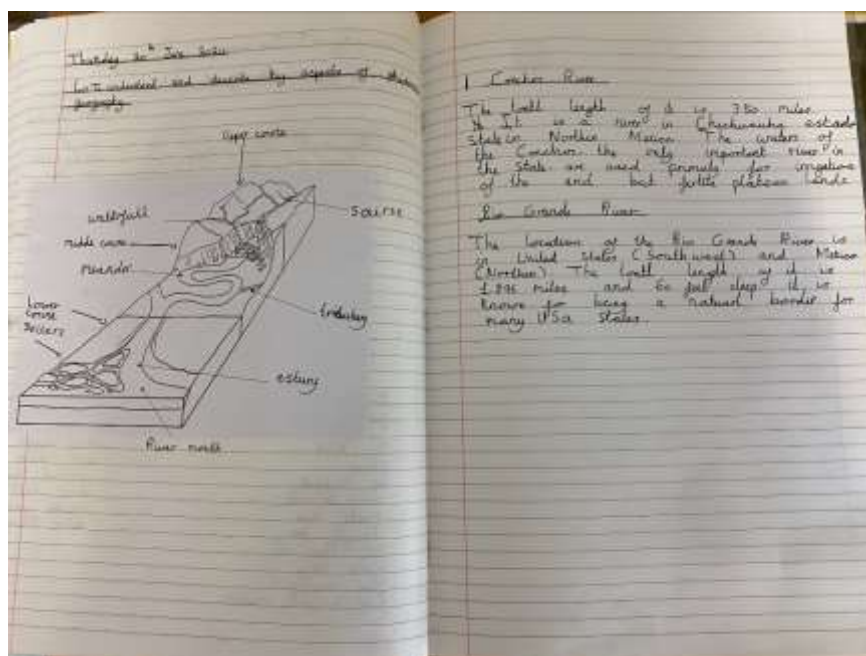 Thursday 20th
LO: To understand and describe key aspects of
geography
upper course
waterfall
sourse
middle course
meander
tributary
Lower
course
estury
River mouth
1 Conchos River
The totll length of it is 350 miles
It is a river in estado
state in Northin Mexico The waters of
the Conchos the only important river in
the state are used for irrigation
of the and best fertile plateau lands
Rio Grande River
The location of the Rio Grande River is
in United States (South west) and Mexico
(Northern) The totll length of it is
1,896 miles and 60 feet deep it is
known for being a natural border for
many USA States.